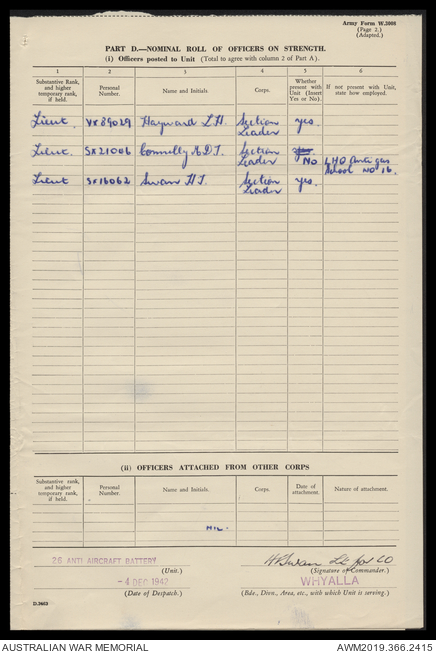 Army Form W.3008
(Page 2.)
(Adapted.)
PART D.—NOMINAL ROLL OF OFFICERS ON STRENGTH.
(i) Officers posted to Unit (Total to agree with column 2 of Part A).
1 2 3 4 5 6
Substantive Rank, and higher temporary rank, if held. Personal Number. Name and Initials. Corps. Whether present with Unit (Insert Yes or No). If not present with Unit, state how employed.
Lieut VX29029 Hayward L.H. Section Leader yes.
Lieut. SX21006 Connelly A.D.J. Section Leader No LHQ Anti gas School No 16.
Lieut SX16062 Swan H.J. Section Leader yes.
(ii) OFFICERS ATTACHED FROM OTHER CORPS
Substantive rank, and higher temporary rank, if held. Personal Number. Name and Initials. Corps. Date of attachment. Nature of attachment.
NIL.
26 ANTI AIRCRAFT BATTERY
(Unit.)
Swan Lt for CO
(Signature of Commander.)
-4 DEC 1942
(Date of Despatch.)
WHYALLA
(Bde., Divn., Area, etc., with which Unit is serving.)
AUSTRALIAN WAR MEMORIAL
AWM2019.366.2415